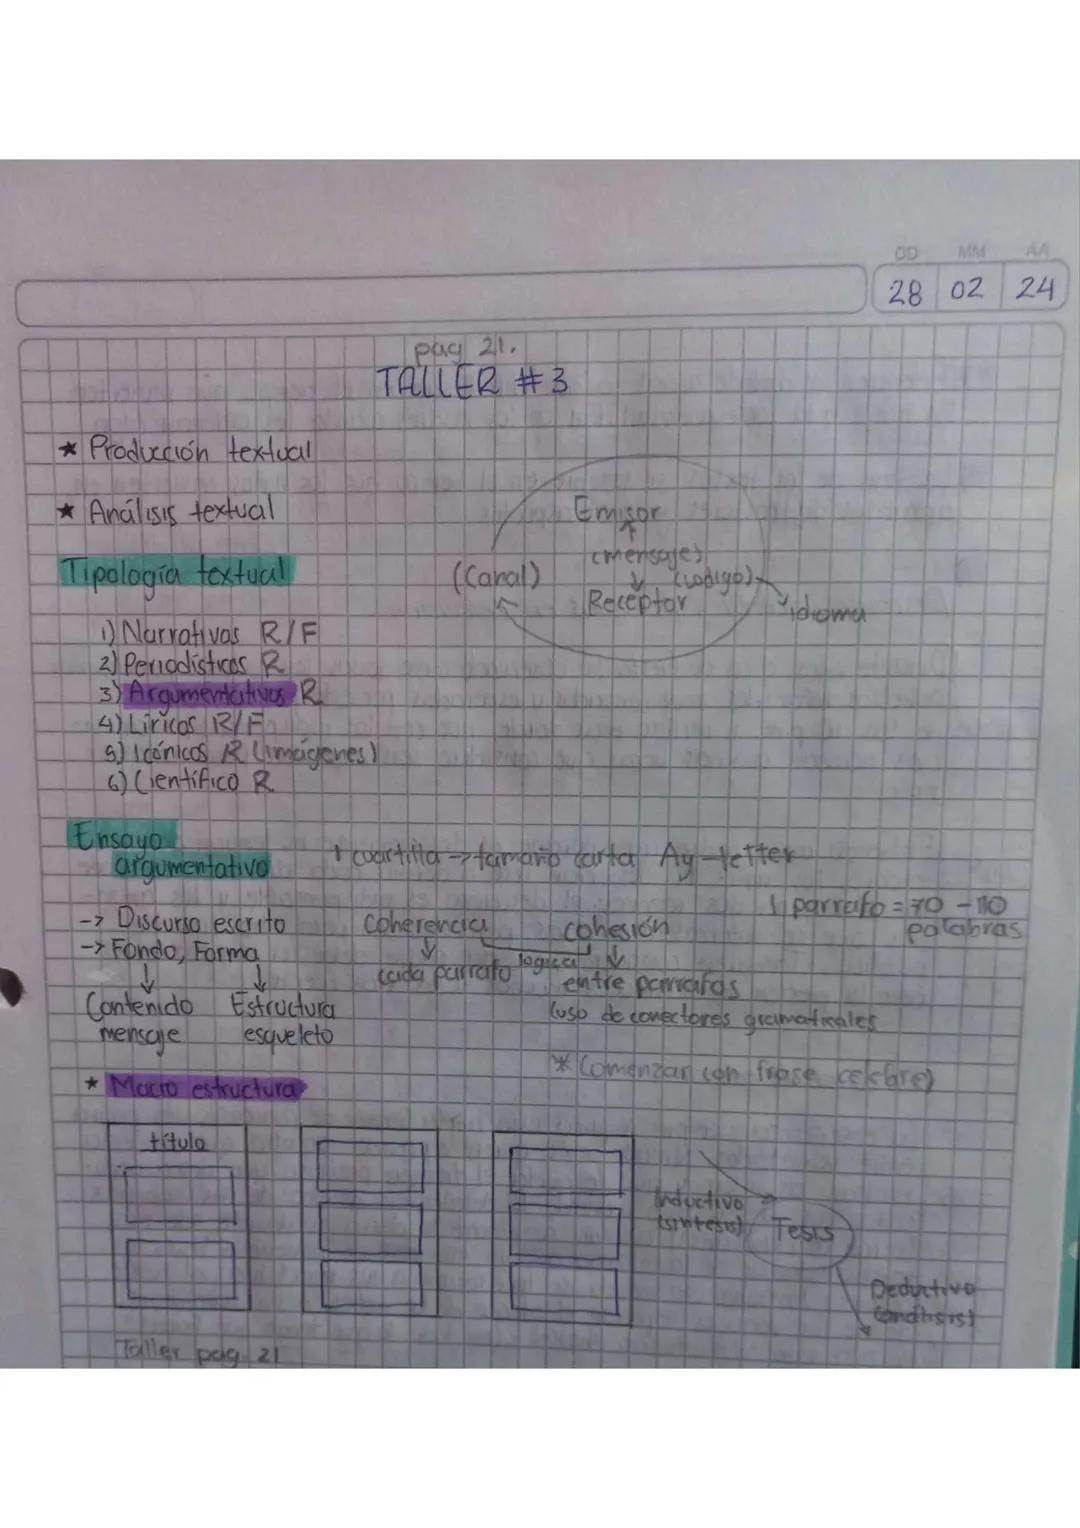 DD MM AA
28 02 24
pag 21.
TALLER #3
* Producción textual
* Análisis textual
Emisor
(mensaje)
(Canal)
(codigo)
Receptor
idioma
Tipología textual
1) Narrativas R/F
2) Periodísticos R
3) Argumentativos R
4) Líricos R/F
5) Icónicos R (imágenes)
6) Científico R
Ensayo
argumentativo
1 cuartilla -> tamaño carta
1 parrafo = 70 - 110
palabras
-> Discurso escrito
-> Fondo, Forma
Contenido Estructura
mensaje esqueleto
Coherencia cohesión
logica
cada parrafo entre parrafos
(uso de conectores gramaticales
* Comenzar con frase celebre)
* Macro estructura
título
Inductivo
(sintesis)
Tesis
Deductivo
(análisis)
Taller pag 21